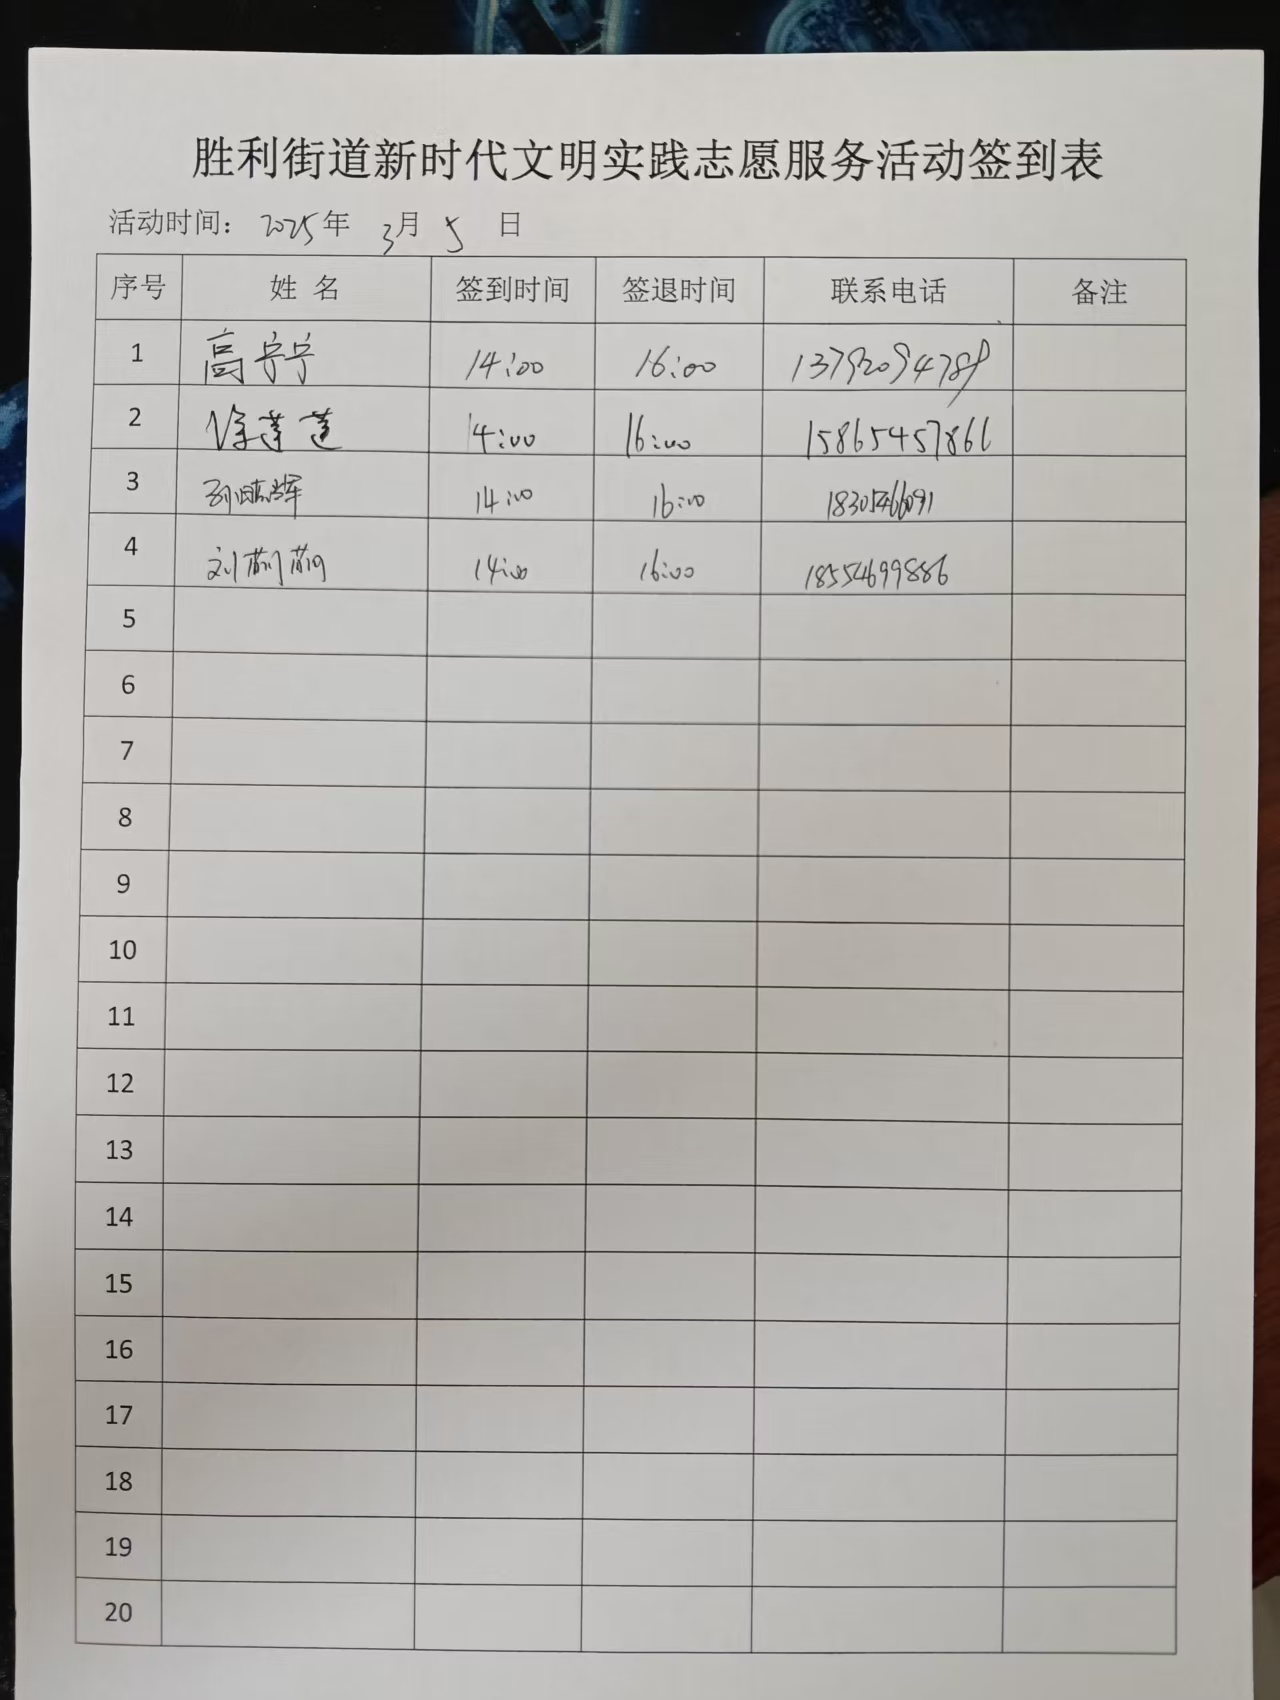 胜利街道新时代文明实践志愿服务活动签到表
活动时间：2025年 3月 5 日
序号 姓 名 签到时间 签退时间 联系电话 备注
1 高宁宁 14:00 16:00 13792094789
2 徐莲莲 14:00 16:00 15865457866
3 14:00 16:00 18305466091
4 刘蒴蒴 14:00 16:00 18554699886
5
6
7
8
9
10
11
12
13
14
15
16
17
18
19
20